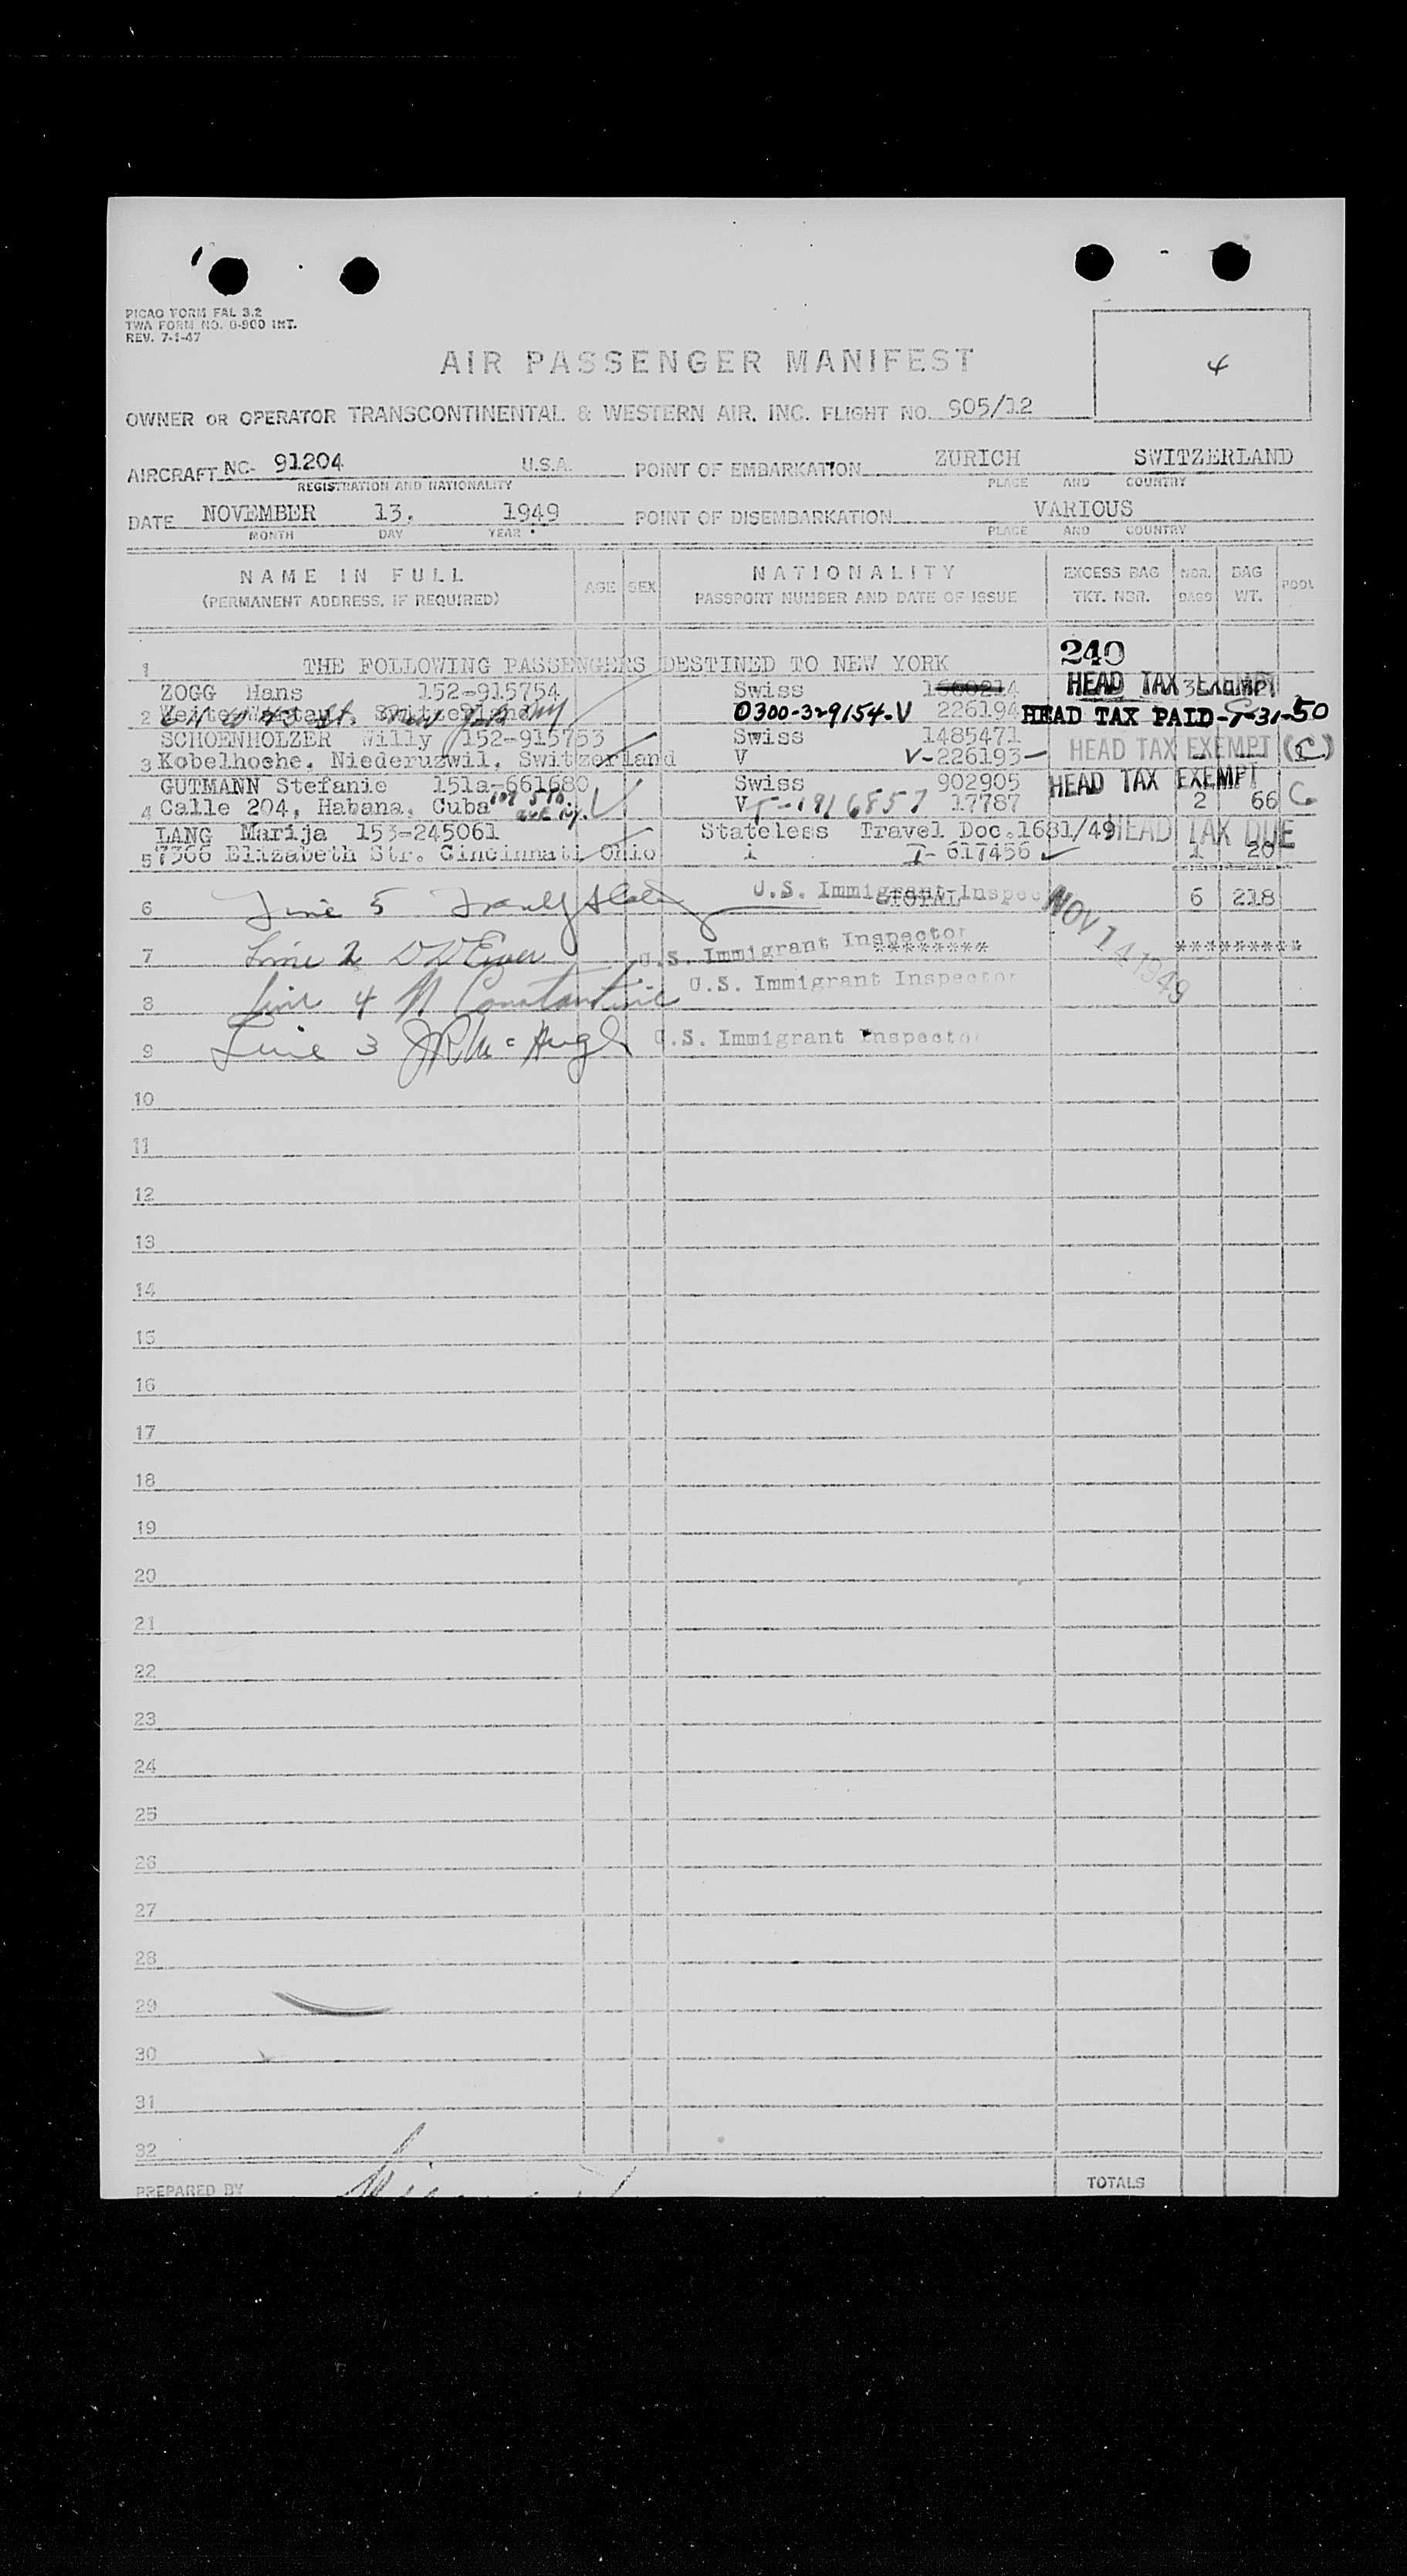 PICAO FORM FAL 3.2
TWA FORM NO. O-900 INT.
REV. 7-1-47
4
AIR PASSENGER MANIFEST
OWNER OR OPERATOR TRANSCONTINENTAL & WESTERN AIR, INC. FLIGHT NO. 905/12
AIRCRAFT NC- 91204 U.S.A. POINT OF EMBARKATION ZURICH SWITZERLAND
REGISTRATION AND NATIONALITY PLACE AND COUNTRY
DATE NOVEMBER 13. 1949 POINT OF DISEMBARKATION VARIOUS
MONTH DAY YEAR PLACE AND COUNTRY
NAME IN FULL AGE SEX NATIONALITY EXCESS BAG NBR. BAG POOL
(PERMANENT ADDRESS, IF REQUIRED) PASSPORT NUMBER AND DATE OF ISSUE TKT. NBR. BAGS WT.
240
1 THE FOLLOWING PASSENGERS DESTINED TO NEW YORK
ZOGG Hans 152-915754 Swiss HEAD TAX EXEMPT
2 Switzerland 0300-329154-V 226194 HEAD TAX PAID-7-31-50
SCHOENHOLZER Willy 152-915753 Swiss 1485471
3 Kobelhoehe, Niederuzwil, Switzerland V V-226193 HEAD TAX EXEMPT (C)
GUTMANN Stefanie 151a-661680 Swiss 902905 HEAD TAX EXEMPT
4 Calle 204, Habana, Cuba V T-1916857 17787 2 66 C
LANG Marija 153-245061 Stateless Travel Doc.1681/49 HEAD TAX DUE
5 7366 Elizabeth Str. Cincinnati Ohio i I-617456 1 20
6 Line 5 U.S. Immigrant Inspec TOTAL 6 218
NOV 14 1949
7 Line 2 U.S. Immigrant Inspector ******** *********
8 Line 4 N Constantine U.S. Immigrant Inspector
9 Line 3 J R McHugh U.S. Immigrant Inspector
10
11
12
13
14
15
16
17
18
19
20
21
22
23
24
25
26
27
28
29
30
31
32
PREPARED BY TOTALS